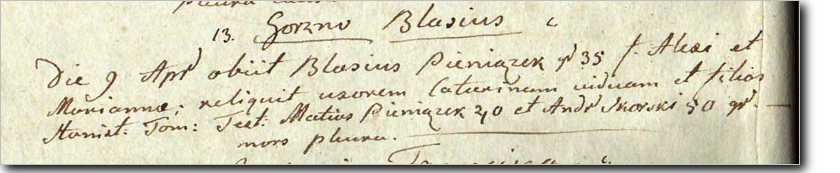 13. Gorzno Blasius
Die 9 Apr obiit Blasius Pieniązek gr 35 f. Alexi et
Mariannæ; reliquit uxorem Catarinam viduam et filios
Stanisl: Tom: Test: Matias Pieniązek 40 et Andr Skorski 50 gr.
mors pleura.